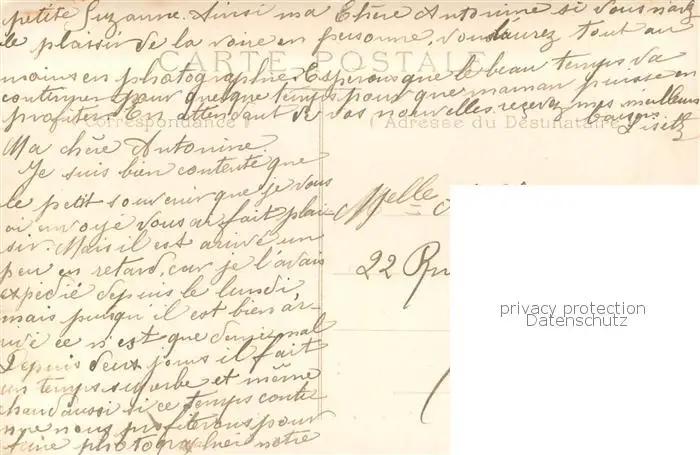 petite Suzanne. Ainsi ma Chère Antonine si vous n'avez
le plaisir de la voire en personne, vous l'aurez tout au
CARTE POSTALE
moins en photographie. Esperons que le beau temps va
continuer pour quelque temps pour que maman puisse en
profiter. En attendant de vos nouvelles recevez mes meilleurs
baisers
Lisette
Correspondance
(Adresse du Destinataire)
Ma chère Antonine.
Je suis bien contente que
le petit souvenir que je vous
ai envoyé vous ai fait plai-
sir. Mais il est arrivé un
peu en retard, car je l'avais
expédié depuis le lundi
mais puisqu'il est bien ar-
rivé ce n'est que demi mal
Depuis deux jours il fait
un temps superbe et même
chaud aussi si ce temps conti
nue nous profiterons pour
faire photographier notre
Melle
22 Ru
privacy protection
Datenschutz